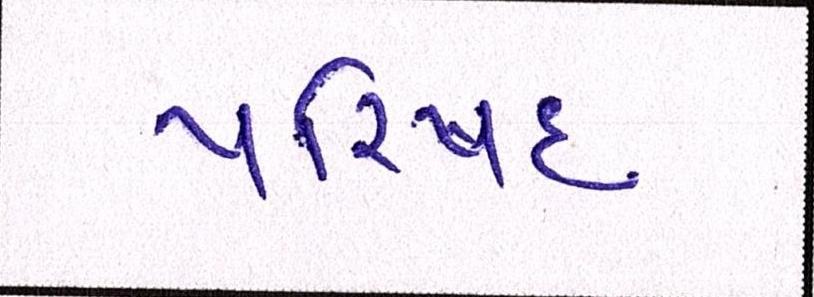 પરિષદ